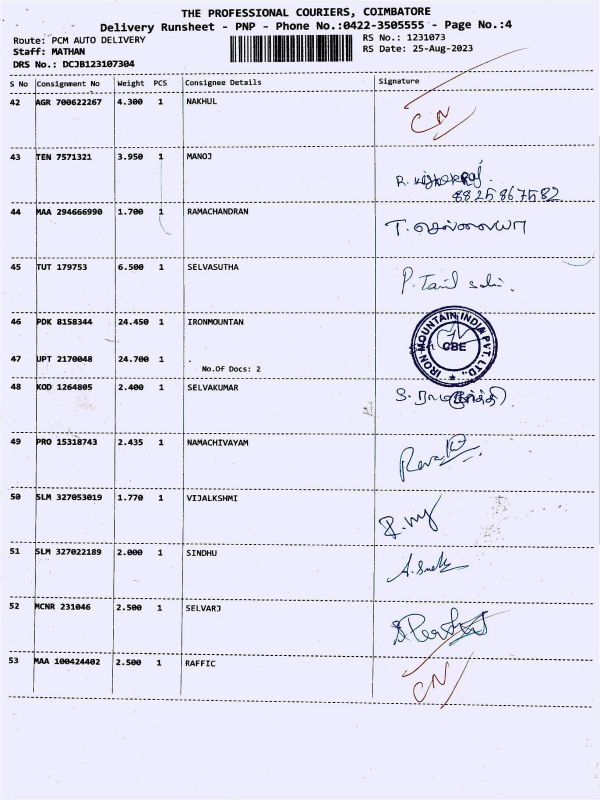 THE PROFESSIONAL COURIERS, COIMBATORE
Delivery Runsheet - PNP - Phone No.:0422-3505555 - Page No.:4
Route: PCM AUTO DELIVERY
RS No.: 1231073
Staff: MATHAN
RS Date: 25-Aug-2023
DRS No.: DCJB123107304
S No Consignment No Weight PCS Consignee Details Signature
42 AGR 700622267 4.300 1 NAKHUL CN
43 TEN 7571321 3.950 1 MANOJ R.
8825867582
44 MAA 294666990 1.700 1 RAMACHANDRAN T.
45 TUT 179753 6.500 1 SELVASUTHA P. Tamil
46 PDK 8158344 24.450 1 IRONMOUNTAN IRON MOUNTAIN INDIA PVT. LTD.,
CBE
47 UPT 2170048 24.700 1
No.Of Docs: 2
48 KOD 1264805 2.400 1 SELVAKUMAR S.
49 PRO 15318743 2.435 1 NAMACHIVAYAM
50 SLM 327053019 1.770 1 VIJALKSHMI
51 SLM 327022189 2.000 1 SINDHU
52 MCNR 231046 2.500 1 SELVARJ
53 MAA 100424402 2.500 1 RAFFIC CN